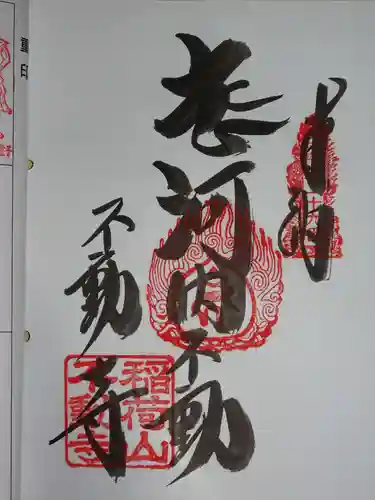 奉拝
河内不動
不動寺
稲荷山
不動寺